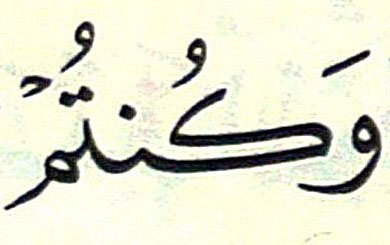 وَكُنتُمْ